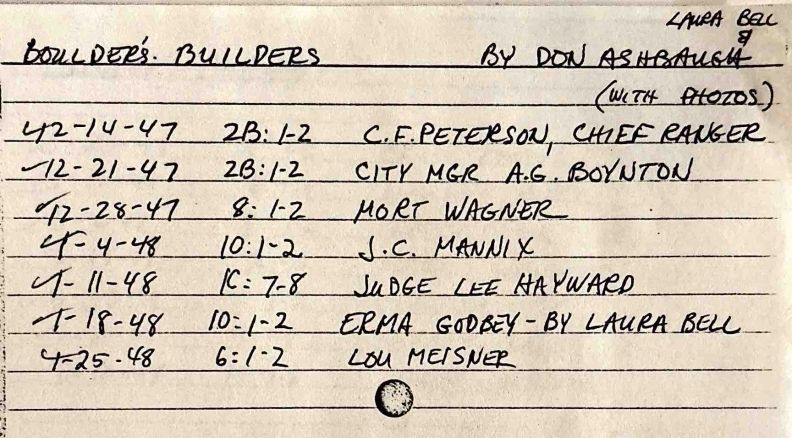 LAURA BELL
&
BOULDER'S BUILDERS BY DON ASHBAUGH
(WITH PHOTOS)
12-14-47 2B: 1-2 C.F. PETERSON, CHIEF RANGER
12-21-47 2B: 1-2 CITY MGR A.G. BOYNTON
12-28-47 8: 1-2 MORT WAGNER
1-4-48 10: 1-2 J.C. MANNIX
1-11-48 1C: 7-8 JUDGE LEE HAYWARD
1-18-48 10: 1-2 ERMA GODBEY - BY LAURA BELL
1-25-48 6: 1-2 LOU MEISNER